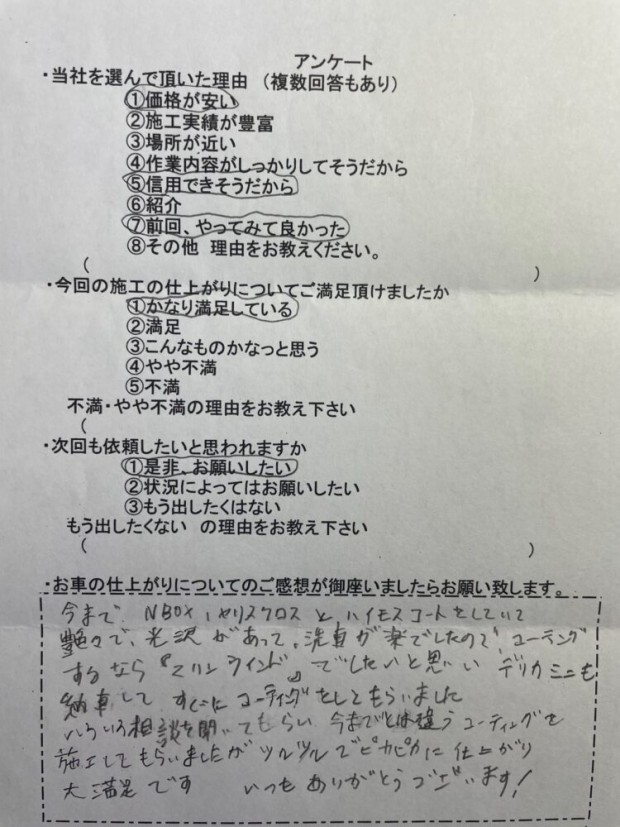 アンケート
・当社を選んで頂いた理由 (複数回答もあり)
①価格が安い
②施工実績が豊富
③場所が近い
④作業内容がしっかりしてそうだから
⑤信用できそうだから
⑥紹介
⑦前回、やってみて良かった
⑧その他 理由をお教えください。
( )
・今回の施工の仕上がりについてご満足頂けましたか
①かなり満足している
②満足
③こんなものかなっと思う
④やや不満
⑤不満
不満・やや不満の理由をお教え下さい
(
・次回も依頼したいと思われますか
①是非、お願いしたい
②状況によってはお願いしたい
③もう出したくはない
もう出したくない の理由をお教え下さい
( )
・お車の仕上がりについてのご感想が御座いましたらお願い致します。
今まで NBOX、ヤリスクロス とハイモスコートをしていて
艶々で、光沢があって、洗車が楽でしたので、コーティング
するなら『マリンウインド』でしたいと思い デリカミニも
納車して すぐにコーティングをしてもらいました
いろいろ相談を聞いてもらい 今までとは違うコーティングを
施工してもらいましたが ツルツルでピカピカに 仕上がり
大満足です いつもありがとうございます!